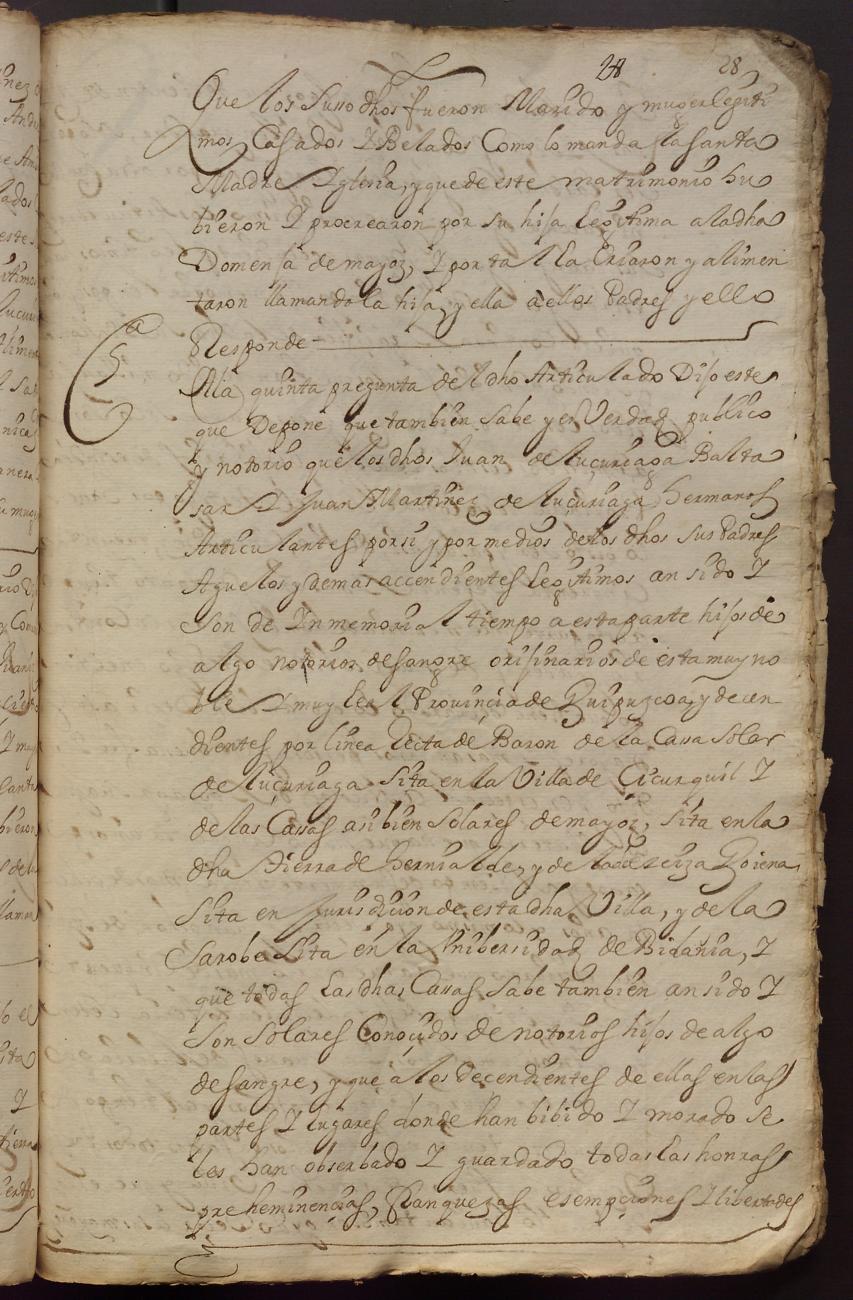 28 28
Que los Susso dhos fueron Marido y muger legiti
mos, Casados Y Belados Como lo manda la santa
Madre Yglesia, y que de este matrimonio hu
bieron Y procrearon por su hija legitima a la dha
Domenja de mayoz, Y por tal la Criaron y alimen
taron llamandola hija, y ella a ellos Padres y ello
Responde
5ª
A la quinta pregunta del dho Articulado Dijo este
que Depone que tambien Sabe y es Verdad publico
y notorio que los dhos Juan de Yucuriaga Balta
sar Y Juan Martinez de Yucuriaga hermanos
Articulantes por si y por medios de los dhos sus Padres
Aguelos y demas accendientes legitimos an sido Y
son de Inmemorial tiempo a esta parte hijos de
algo notorios de sangre orijinarios de esta muy no
ble Y muy leal Provincia de Guipuzcoa, y decen
dientes por linea Recta de Baron de la Casa Solar
de Yucuriaga Sita en la Villa de Cicurquil Y
de las Casas asi bien Solares de mayoz, Sita en la
dha tierra de hernialde, y de la de Goiena
Sita en Jurisdicion de esta dha Villa, y de la
Sarobe Sita en la Unibersidad de Bidania, Y
que todas las dhas Casas Sabe tambien an sido Y
son Solares Conocidos de notorios hijos de algo
de sangre, y que a los Decendientes de ellas en las
partes Y lugares donde han bibido Y morado se
les han obserbado Y guardado todas las honras
preheminencias, franquezas esempciones Y libertades